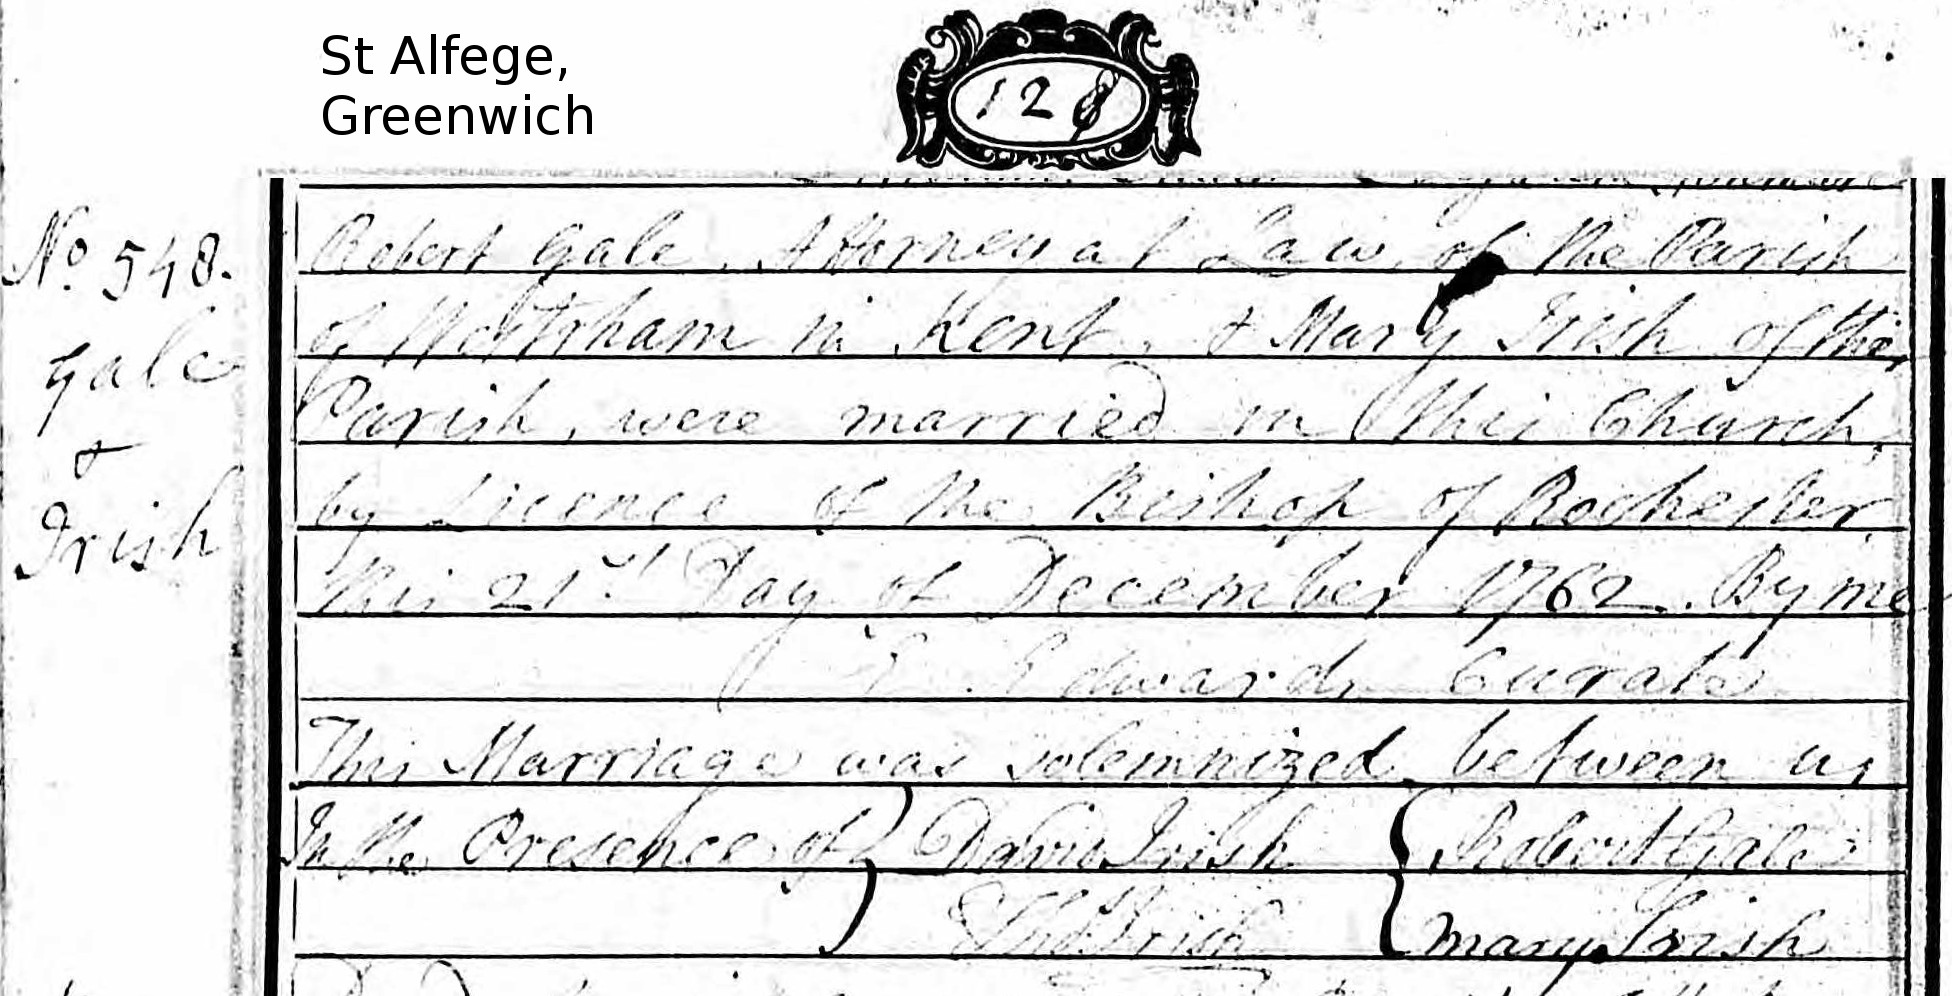 St Alfege,
Greenwich
128
No. 548.
Gale
&
Irish
Robert Gale, Attorney at Law, of the Parish
of Westrham in Kent, & Mary Irish of this
Parish, were married in this Church,
by Licence of the Bishop of Rochester
this 21st Day of December 1762. By me
Edwards Curate
This Marriage was solemnized between us
In the Presence of } David Irish { Robert Gale
Irish { Mary Irish